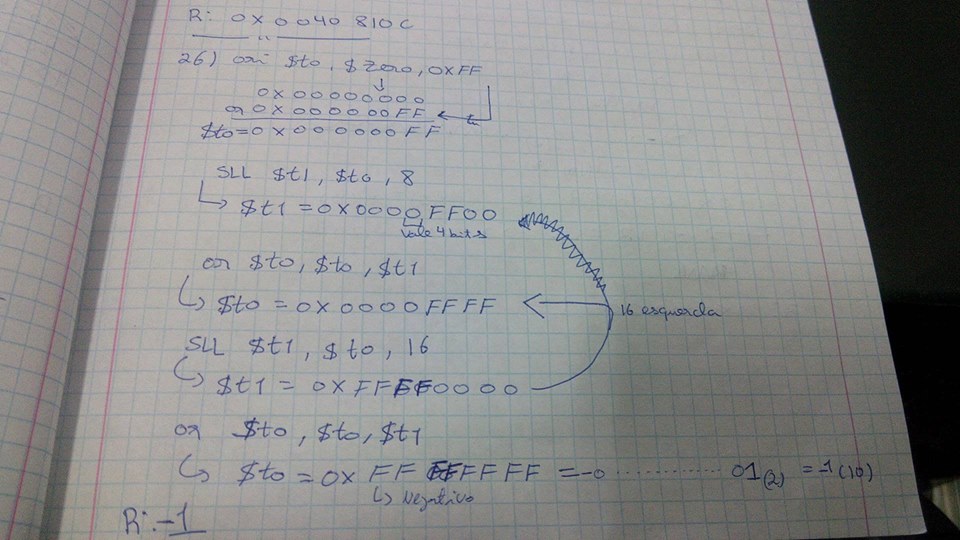 R: 0x0040 810C
26) ori $t0, $zero, 0xFF
0x00000000
or 0x000000FF
$t0=0x000000FF
SLL $t1, $t0, 8
$t1 = 0x0000FF00
vale 4 bits
or $t0, $t0, $t1
$t0 = 0x0000FFFF
16 esquerda
SLL $t1, $t0, 16
$t1 = 0xFFFF0000
or $t0, $t0, $t1
$t0 = 0x FF FFFF FF = -0 ............ 01(2) = -1(10)
Negativo
R: -1